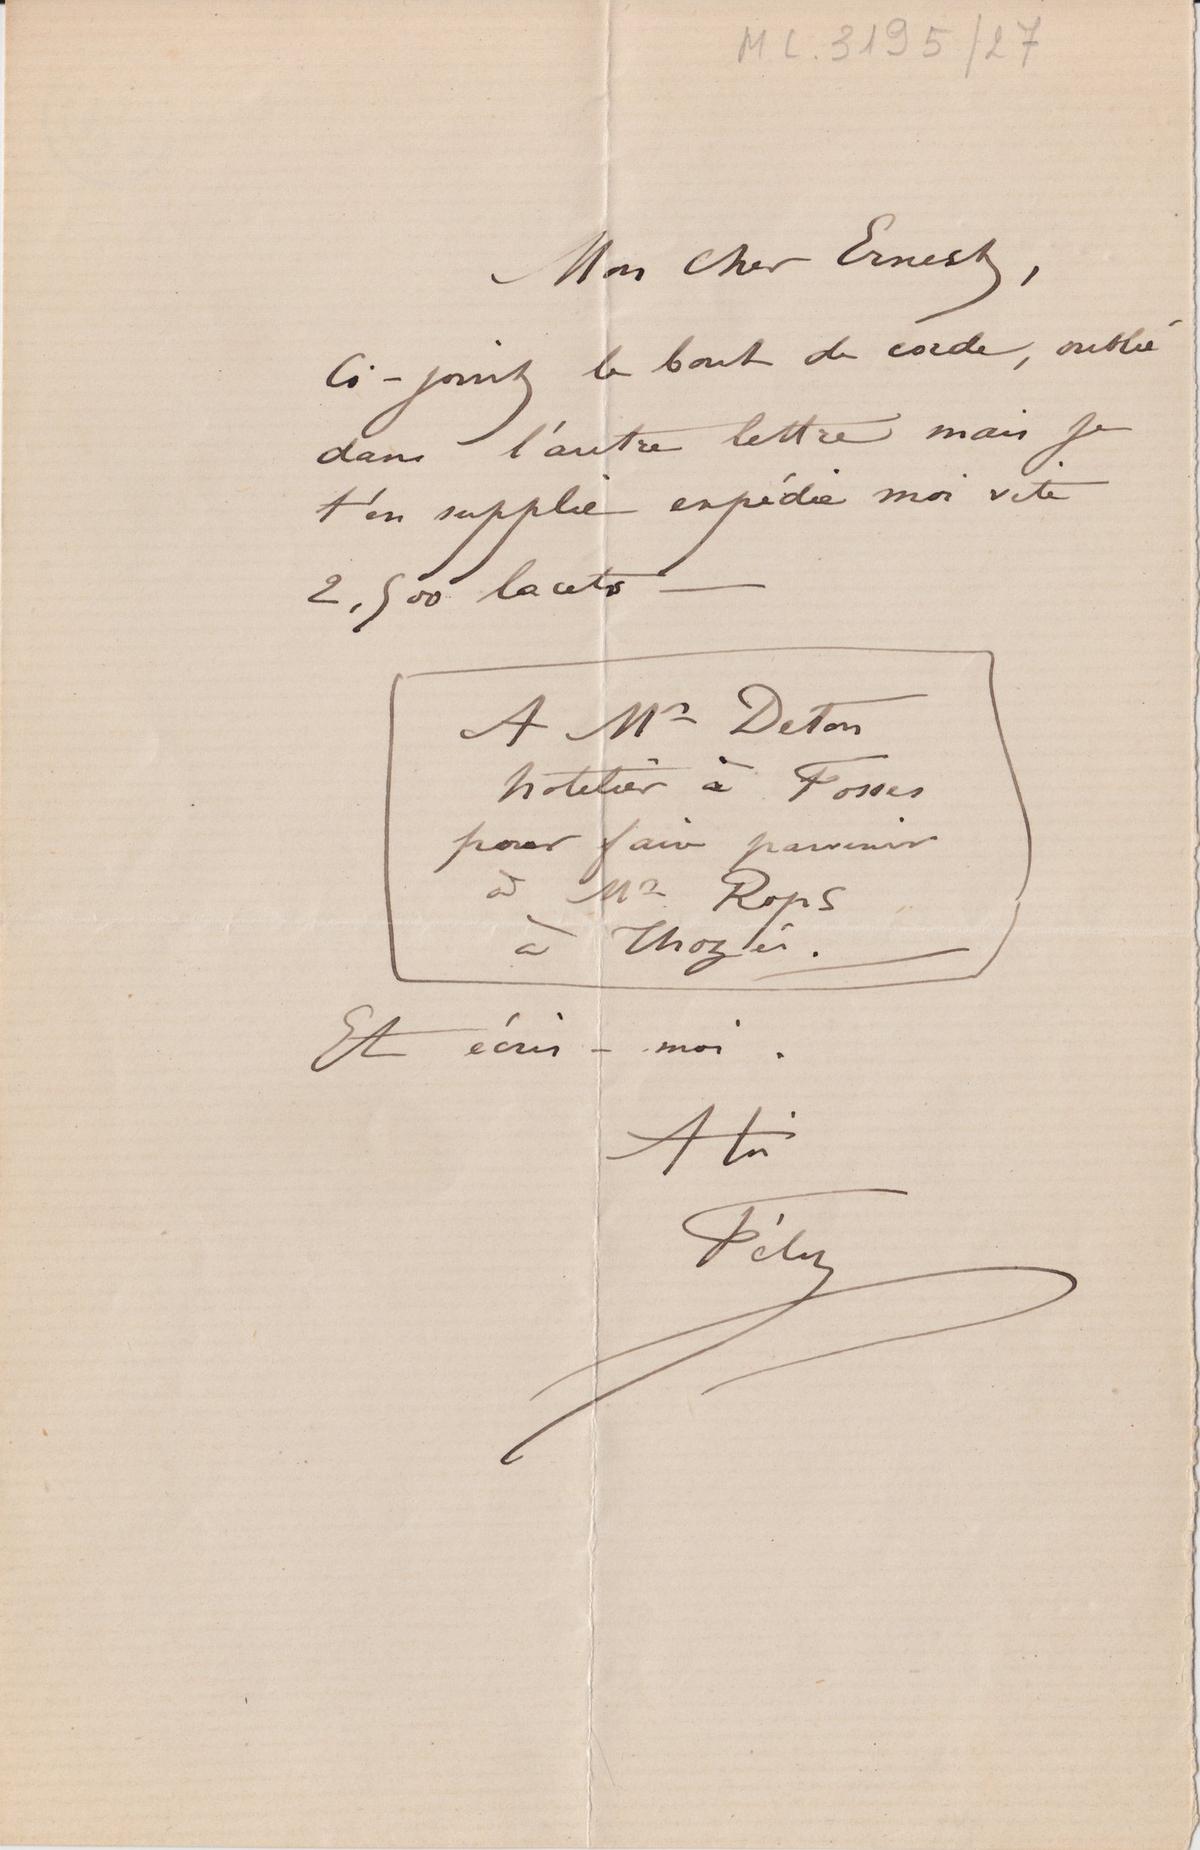 ML.3195/27
Mon cher Ernest,
Ci-joint le bout de corde, oublié
dans l'autre lettre mais je
t'en supplie expédie moi vite
2,500 lacets —
A Mr Deton
hotelier à Fosses
pour faire parvenir
à Mr Rops
à Thozée.
Et écris-moi.
A toi
Fély